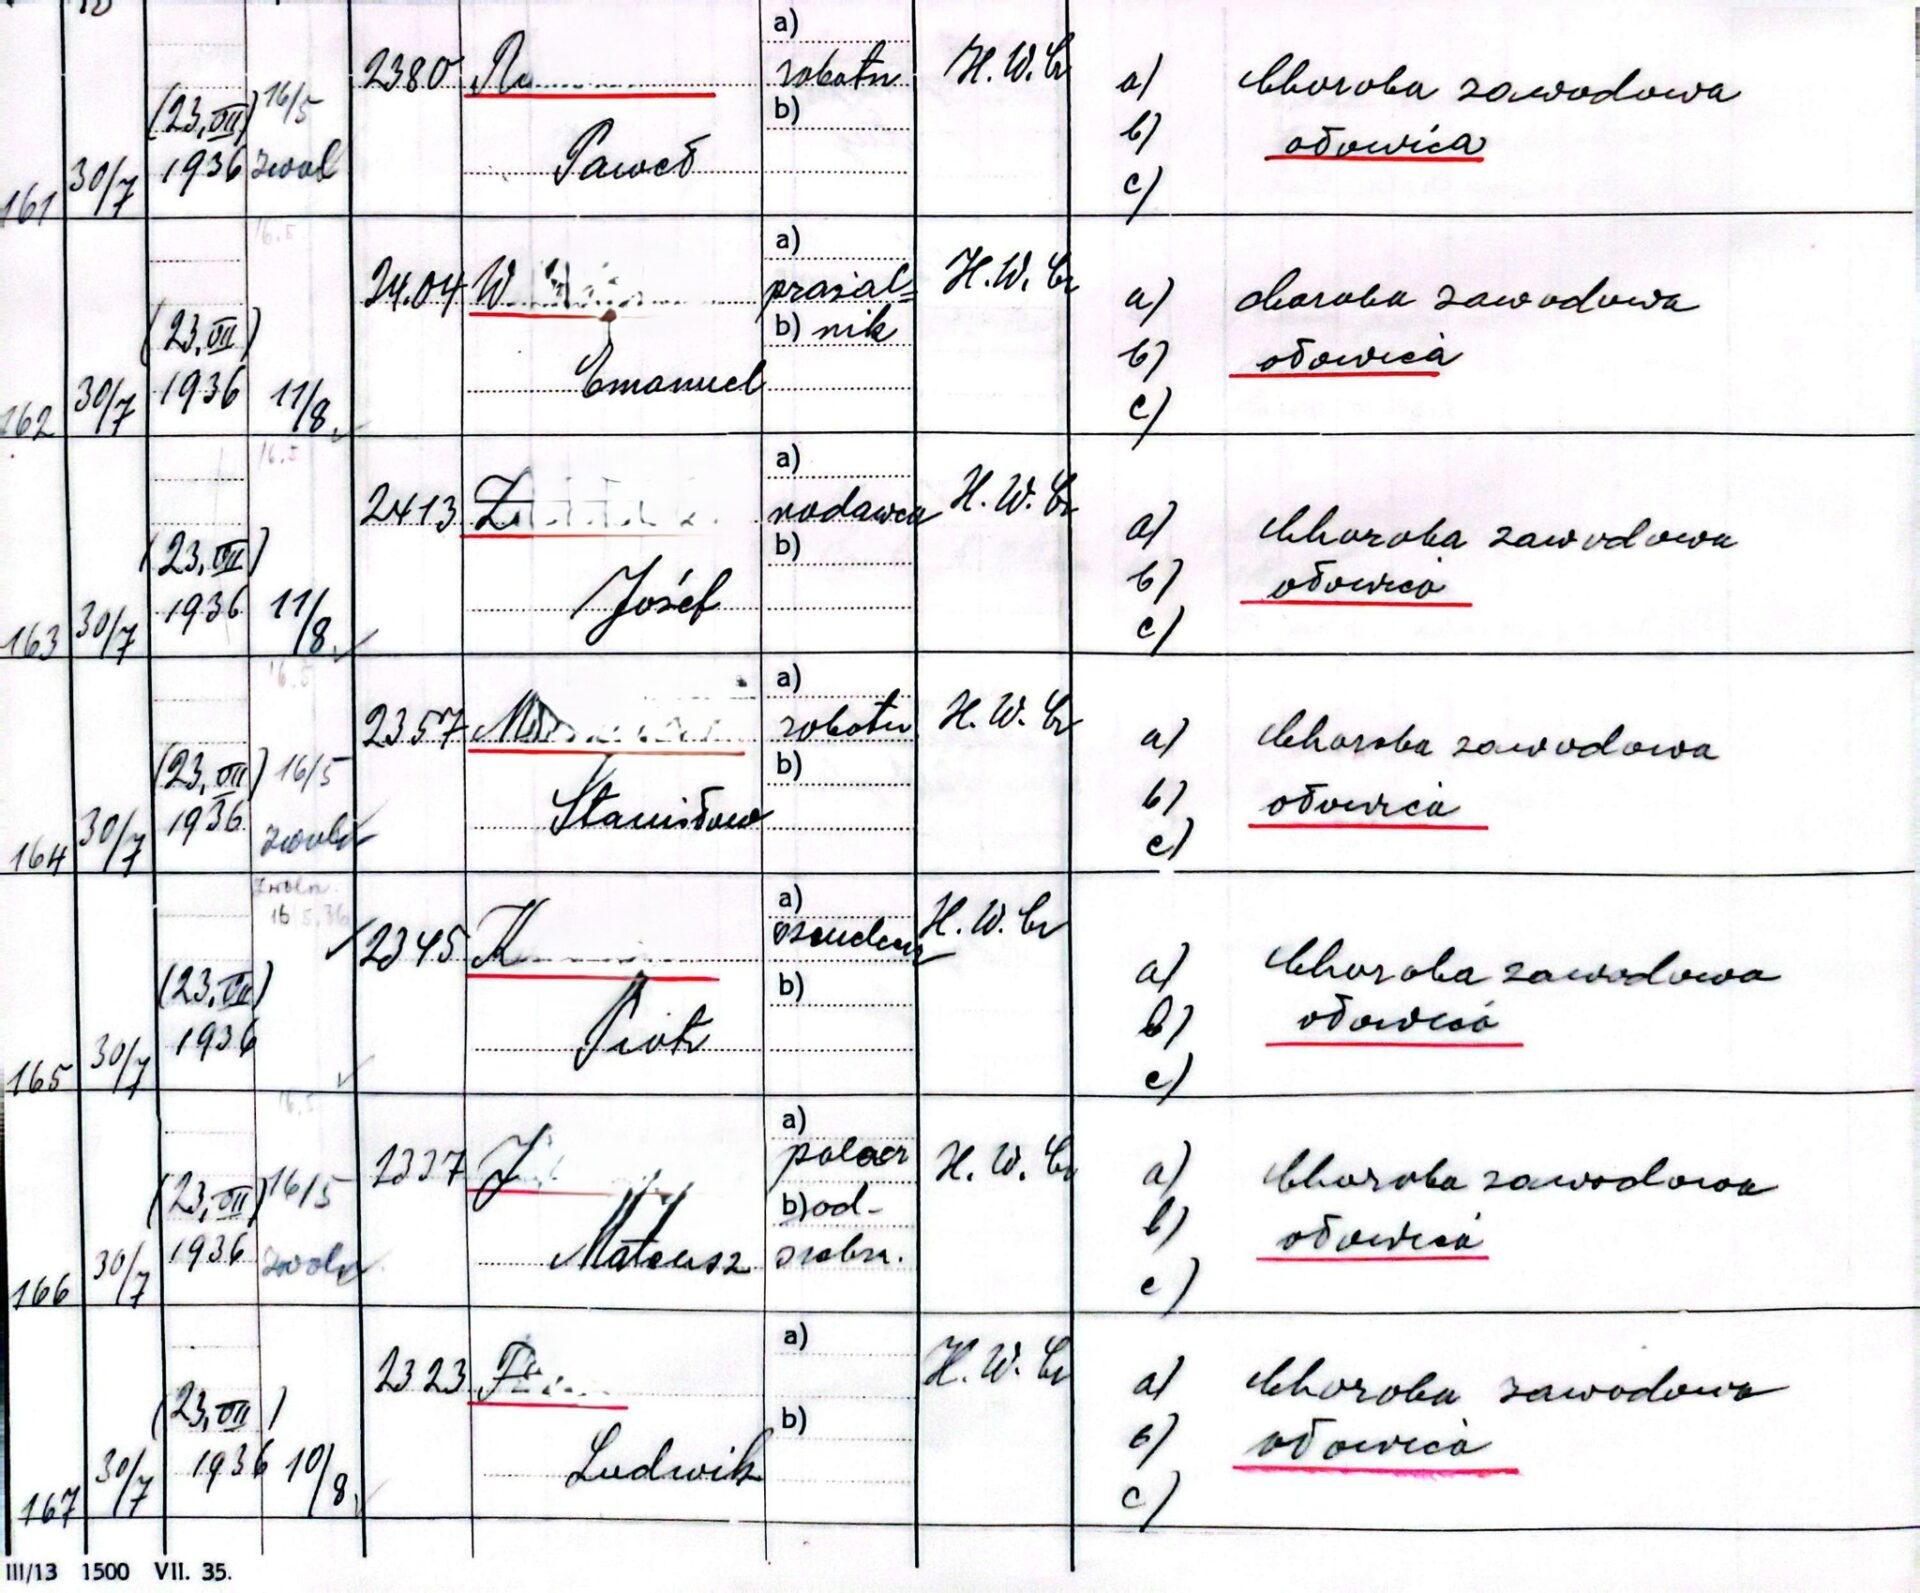 161 30/7 (23.VII) 1936 16/5 zwol 2380 R
Paweł
a) robotn
b)
H.W.Cr
a) Choroba zawodowa
b) ołowica
c)
16.5
162 30/7 (23.VII) 1936 11/8 2404 W
Emanuel
a) prażal=
b) nik
H.W.Cr
a) choroba zawodowa
b) ołowica
c)
16.5
163 30/7 (23.VII) 1936 11/8 2413 Z
Józef
a) nadawca
b)
H.W.Cr
a) Choroba zawodowa
b) ołowica
c)
16.5
164 30/7 (23.VII) 1936 16/5 zwoln 2357 M
Stanisław
a) robotn
b)
H.W.Cr
a) Choroba zawodowa
b) ołowica
c)
zwoln.
16/5.36
165 30/7 (23.VII) 1936 2345 K
Piotr
a)
b)
H.W.Cr
a) Choroba zawodowa
b) ołowica
c)
16.5
166 30/7 (23.VII) 1936 16/5 zwoln 2337 J
Mateusz
a) palacz
b) od-
srebrn.
H.W.Cr
a) Choroba zawodowa
b) ołowica
c)
167 30/7 (23.VII) 1936 10/8 2323 F
Ludwik
a)
b)
H.W.Cr
a) Choroba zawodowa
b) ołowica
c)
III/13 1500 VII. 35.